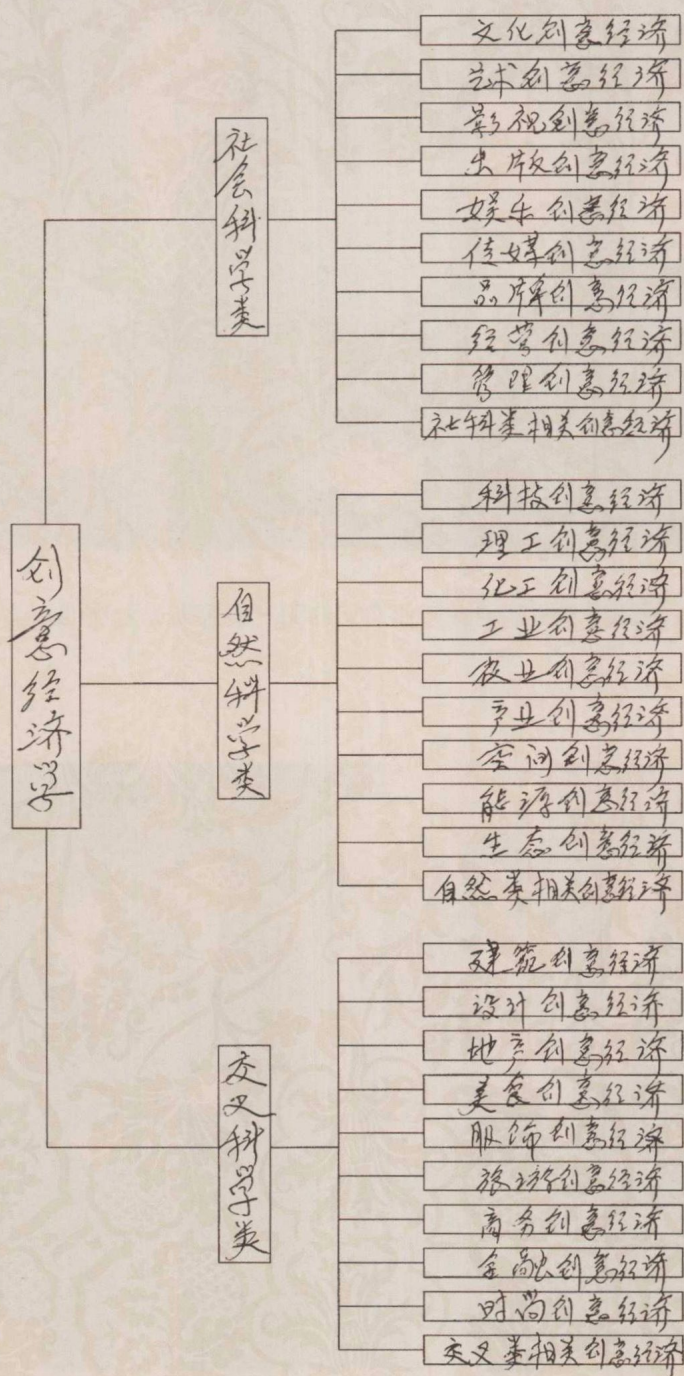 创意经济学
社会科学类
文化创意经济
艺术创意经济
影视创意经济
出版创意经济
娱乐创意经济
传媒创意经济
品牌创意经济
经营创意经济
管理创意经济
社科类相关创意经济
自然科学类
科技创意经济
理工创意经济
化工创意经济
工业创意经济
农业创意经济
产业创意经济
空间创意经济
能源创意经济
生态创意经济
自然类相关创意经济
交叉科学类
建筑创意经济
设计创意经济
地产创意经济
美食创意经济
服饰创意经济
旅游创意经济
商务创意经济
金融创意经济
时尚创意经济
交叉类相关创意经济